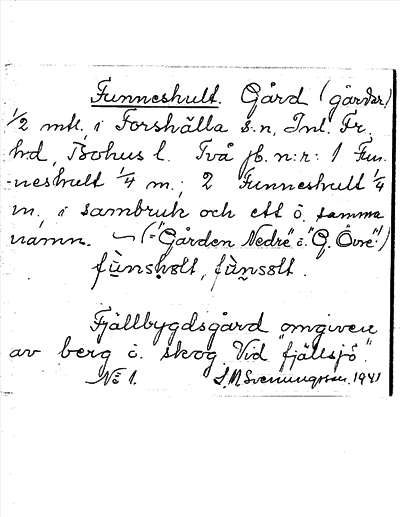 Funneshult. Gård (gårdar)
1/2 mtl. i Forshälla s:n, Inl. Fr.
h:d, Bohus l. Två jb. n:r: 1 Fun-
-neshult 1/4 m.; 2 Funneshult 1/4
m. i sambruk och ett ö. samma
namn. — (="Gården Nedre" o. "G. Övre"!)
fùnshølt, fùnsølt.
Fjällbygdsgård omgiven
av berg o. skog. Vid "fjällsjö".
No 1. S. M. Svenungsson. 1941